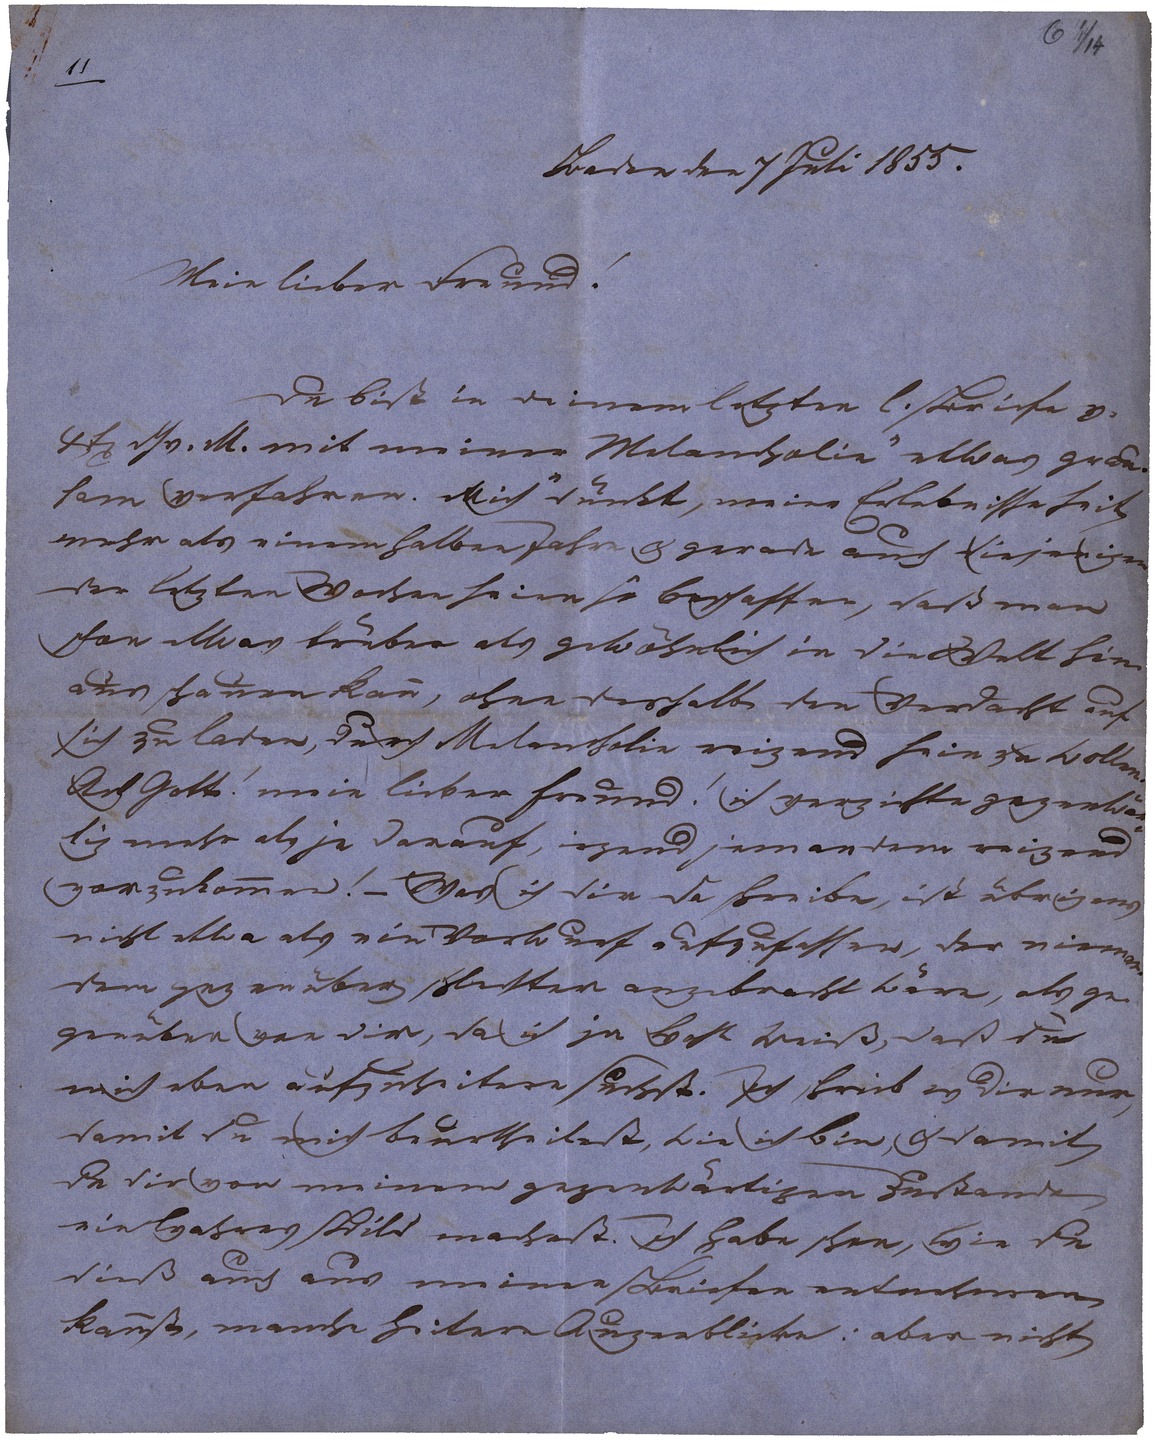 11
Baden den 7 Juli 1855.
Mein lieber Freund!
Du bist in deinem letzten l. Briefe v.
d. M. mit meiner "Melancholie" etwas grau-
sam verfahren. Mich dünkt, meine Erlebnisse seit
mehr als einem halben Jahre & gerade auch diejenigen
der letzten Wochen seien so beschaffen, daß man
schon etwas trüber als gewöhnlich in die Welt hin-
aus schauen kann, ohne deshalb den Verdacht auf
sich zu laden, durch Melancholie reizend sein zu wollen.
Ach Gott! mein lieber Freund! ich verzichte gegenwär-
tig mehr als je darauf, irgend jemandem reizend
vorzukommen! – Was ich dir da schreibe, ist übrigens
nicht etwa als ein Vorwurf aufzufassen, der nieman-
dem gegenüber schlechter angebracht wäre, als ge-
genüber von dir, da ich ja wohl weiß, daß du
mich eben aufzuheitern suchst. Ich schrieb es dir nur,
damit du mich beurtheilest, wie ich bin, & damit
du dir von meinem gegenwärtigen Zustande
ein wahres Bild machest. Ich habe schon, wie du
dieß auch aus meinen Briefen entnehmen
kannst, manche heitere Augenblicke: aber nicht